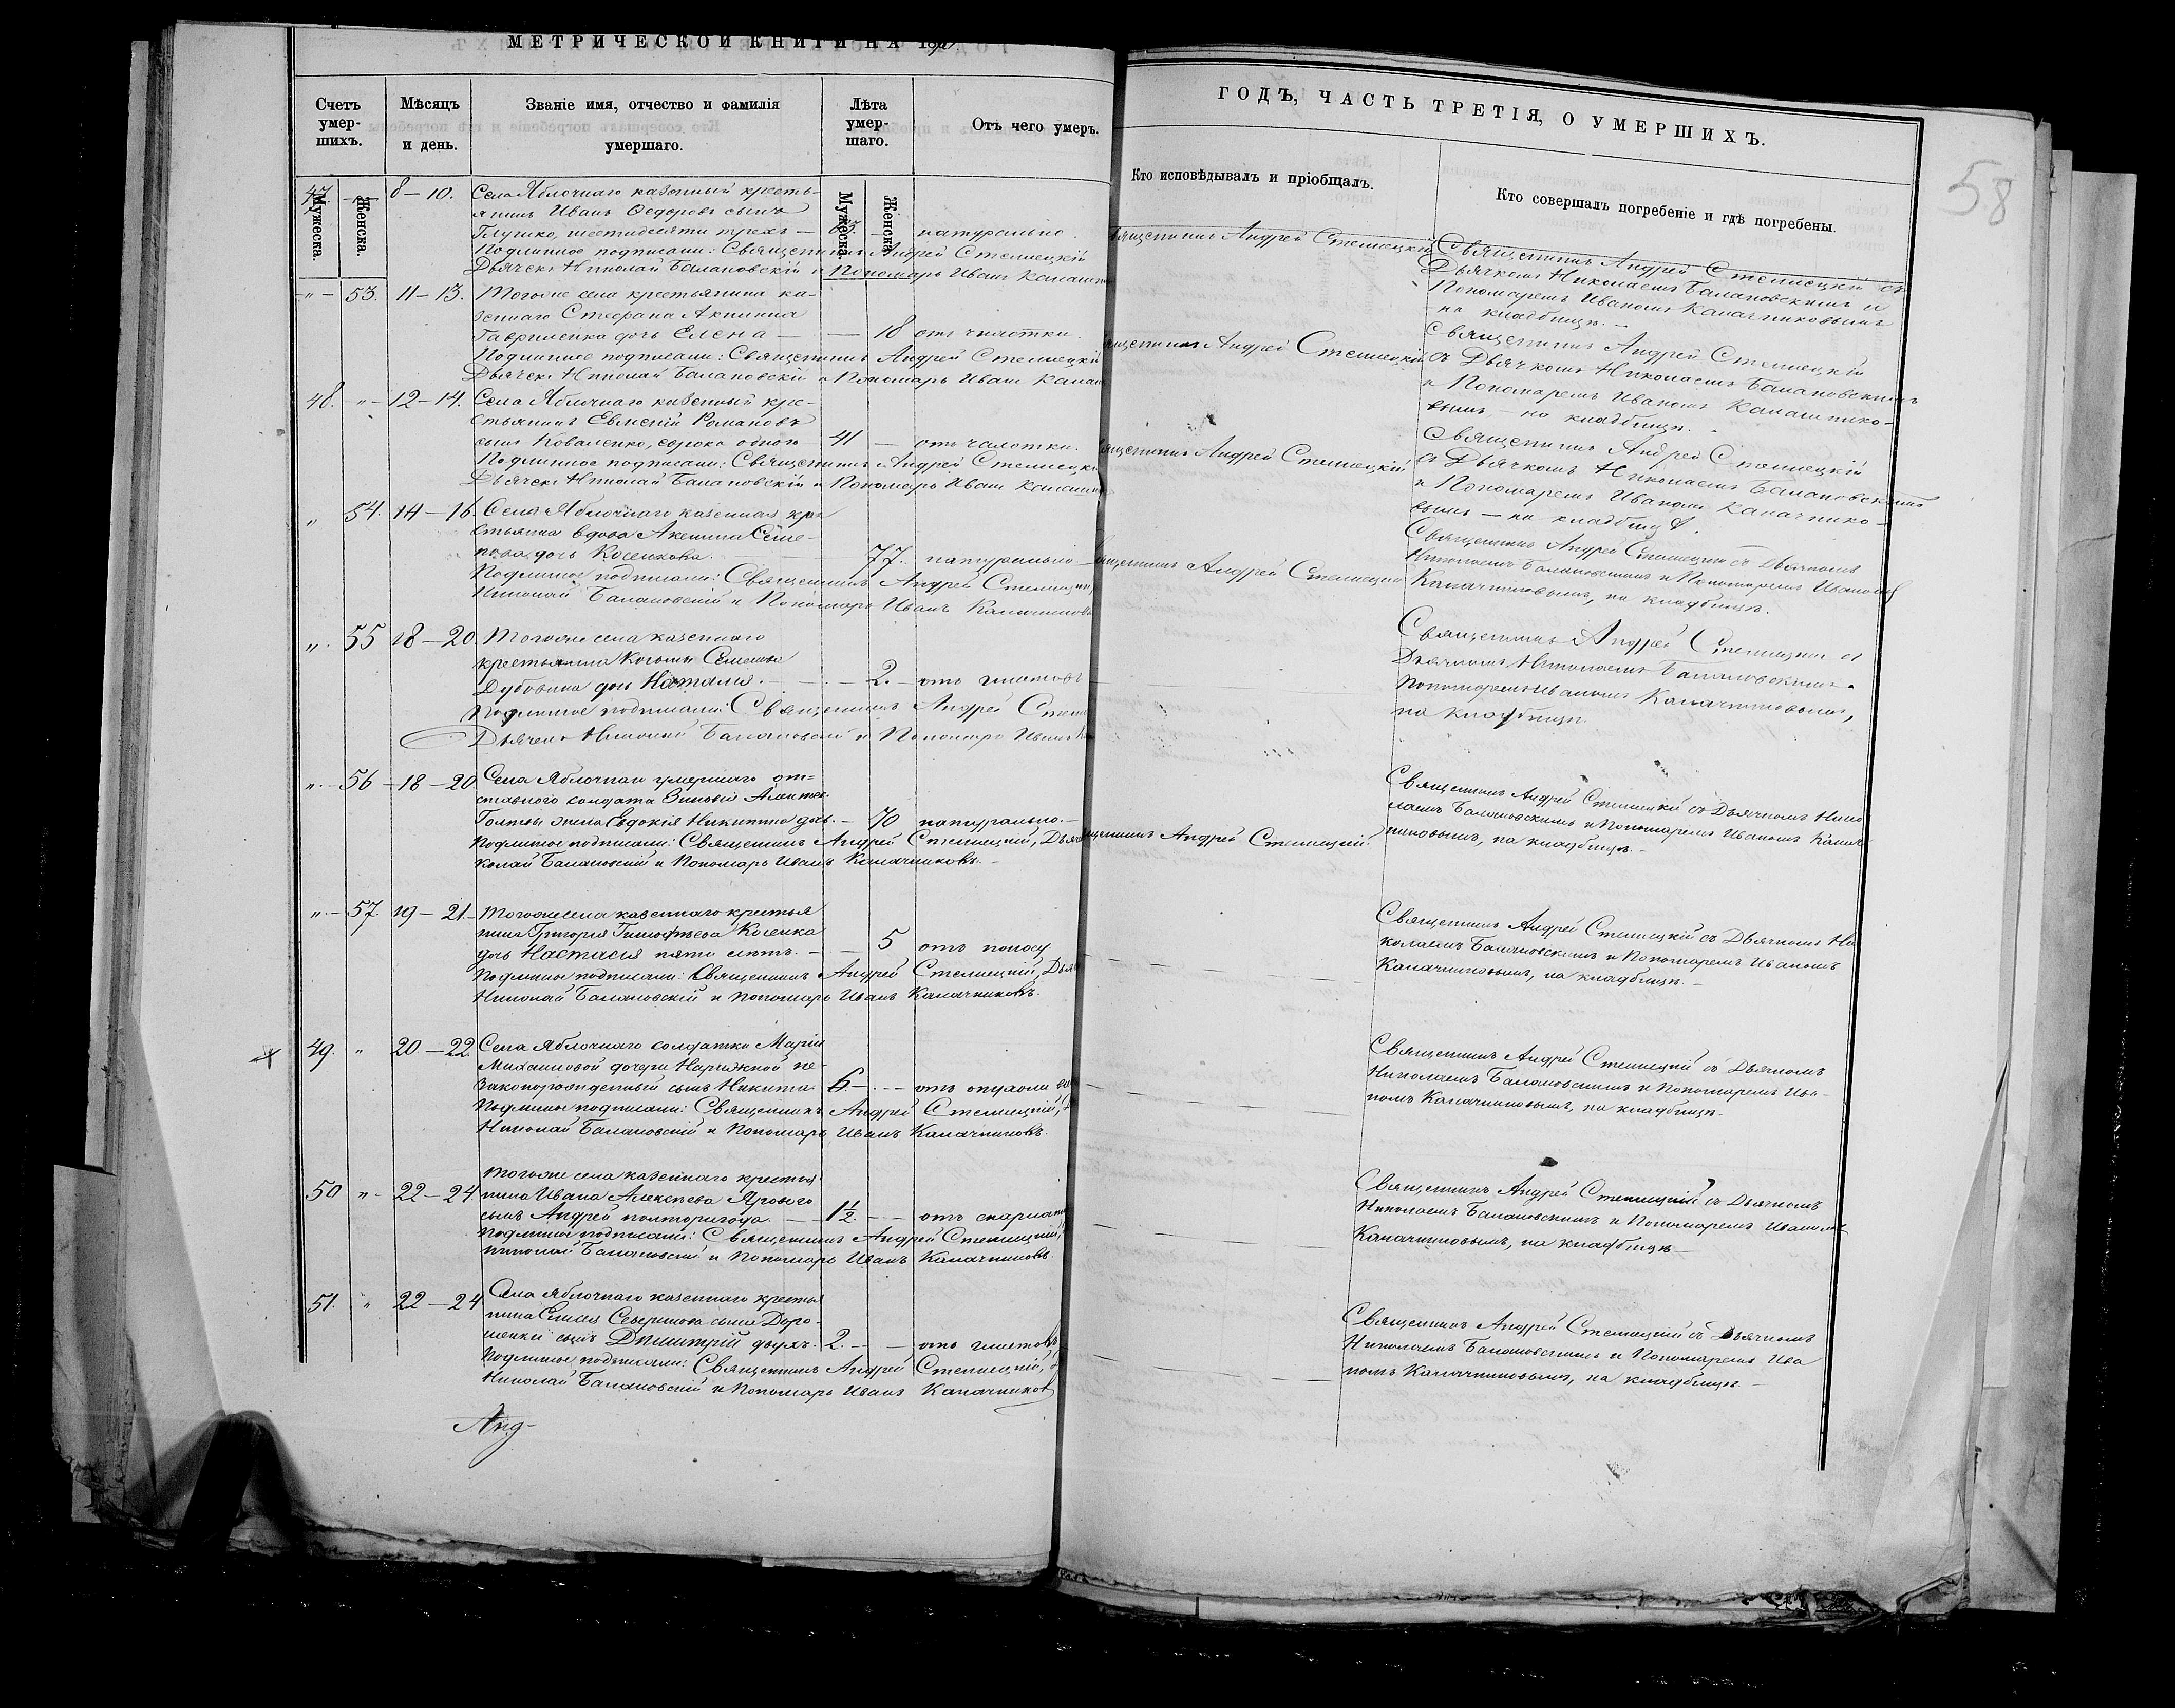 МЕТРИЧЕСКОЙ КНИГИ НА 18
ГОДЪ, ЧАСТЬ ТРЕТІЯ, О УМЕРШИХЪ.
58
Счетъ умер-шихъ.
Мужеска.
Женска.
Мѣсяцъ и день.
Званіе имя, отчество и фамилія умершаго.
Лѣта умер-шаго.
Мужеска.
Женска.
Отъ чего умеръ.
Кто исповѣдывалъ и пріобщалъ.
Кто совершалъ погребеніе и гдѣ погребены.
47 8–10. Села Яблочнаго казенный кресть-
янинъ Иванъ Ѳедоровъ сынъ
Глушко, шестидесяти трехъ — 63. — натурально.
Подлинное подписали: Священникъ Андрей Стеллецкій
Дьячекъ Николай Балановскій и Пономарь Иванъ
Священникъ Андрей Стеллецкій
Священникъ Андрей Стеллецкій съ
Дьячкомъ Николаемъ Балановскимъ и
Пономаремъ Иваномъ Калачниковымъ
на кладбищѣ. —
" — 53. 11–13. Тогоже села крестьянина ка-
зеннаго Стефана
Гавриленка дочь Елена — — 18 отъ чахотки.
Подлинное подписали: Священникъ Андрей Стеллецкій
Дьячекъ Николай Балановскій и Пономарь Иванъ
Священникъ Андрей Стеллецкій
Священникъ Андрей Стеллецкій
съ Дьячкомъ Николаемъ Балановскимъ
и Пономаремъ Иваномъ Калачнико-
вымъ, — на кладбищѣ.
48. "– 12–14. Села Яблочнаго казенный кре-
стьянинъ Евменій Романовъ
сынъ Коваленко, сорока одного 41 — отъ чахотки.
Подлинное подписали: Священникъ Андрей Стеллецкій
Дьячекъ Николай Балановскій и Пономарь Иванъ
Священникъ Андрей Стеллецкій
Священникъ Андрей Стеллецкій
съ Дьячкомъ Николаемъ Балановскимъ
и Пономаремъ Иваномъ Калачнико-
вымъ — на кладбищѣ.
" 54. 14–16. Села Яблочнаго казенная кре-
стьянка вдова Аксинія Семе-
нова дочь Косенкова. — 77. натурально —
Подлинное подписали: Священникъ Андрей Стеллецкій
Николай Балановскій и Пономарь Иванъ Калачниковъ
Священникъ Андрей Стеллецкій
Священникъ Андрей Стеллецкій съ Дьячкомъ
Николаемъ Балановскимъ и Пономаремъ Иваномъ
Калачниковымъ, на кладбищѣ.
". 55 18–20. Тогоже села казеннаго
крестьянина Козьмы Семенова
Дубовика дочь Наталія. — 2. — отъ глистовъ
Подлинное подписали: Священникъ Андрей
Дьячекъ Николай Балановскій и Пономарь Иванъ
Священникъ Андрей Стеллецкій съ
Дьячкомъ Николаемъ Балановскимъ и
Пономаремъ Иваномъ Калачниковымъ,
на кладбищѣ.
".– 56 –18–20 Села Яблочнаго умершаго от=
ставного солдата Зиновія
жена Евдокія Никитина дочь. — 70 натурально. —
Подлинное подписали: Священникъ Андрей Стеллецкій,
колай Балановскій и Пономарь Иванъ Калачниковъ. —
Священникъ Андрей Стеллецкій.
Священникъ Андрей Стеллецкій съ Дьячкомъ Нико
лаемъ Балановскимъ и Пономаремъ Иваномъ Калач
никовымъ, на кладбищѣ. —
".– 57. 19–21.– Тогоже села казеннаго крестья
нина Григорія Тимоѳѣева Косенка
дочь Настасія пяти лѣтъ. — — 5 отъ поносу
Подлинное подписали: Священникъ Андрей Стеллецкій,
Николай Балановскій и Пономарь Иванъ Калачниковъ.
Священникъ Андрей Стеллецкій съ Дьячкомъ Ни
колаемъ Балановскимъ и Пономаремъ Иваномъ
Калачниковымъ, на кладбищѣ. —
49. " 20–22. Села Яблочнаго солдатки Маріи
Михаиловой дочери Нарижной не-
законорожденный сынъ Никита 6.– — отъ опухоли
Подлинное подписали: Священникъ Андрей Стеллецкій,
Николай Балановскій и Пономарь Иванъ Калачниковъ.
Священникъ Андрей Стеллецкій съ Дьячкомъ
Николаемъ Балановскимъ и Пономаремъ Ива-
номъ Калачниковымъ, на кладбищѣ.
50 "– 22–24. Тогоже села казеннаго крестья
нина Ивана Алексѣева Ярового
сынъ Андрей полторагода. — 1½. — отъ
Подлинное подписали: Священникъ Андрей Стеллецкій,
Николай Балановскій и Пономарь Иванъ Калачниковъ.
Священникъ Андрей Стеллецкій съ Дьячкомъ
Николаемъ Балановскимъ и Пономаремъ Иваномъ
Калачниковымъ, на кладбищѣ —
51. " 22–24 Села Яблочнаго казеннаго крестья
нина сына Доро-
шенки сынъ Димитрій двухъ. 2. — — отъ глистовъ
Подлинное подписали: Священникъ Андрей Стеллецкій,
Николай Балановскій и Пономарь Иванъ Калачниковъ
Священникъ Андрей Стеллецкій съ Дьячкомъ
Николаемъ Балановскимъ и Пономаремъ Ива
номъ Калачниковымъ, на кладбищѣ. —
Анд-